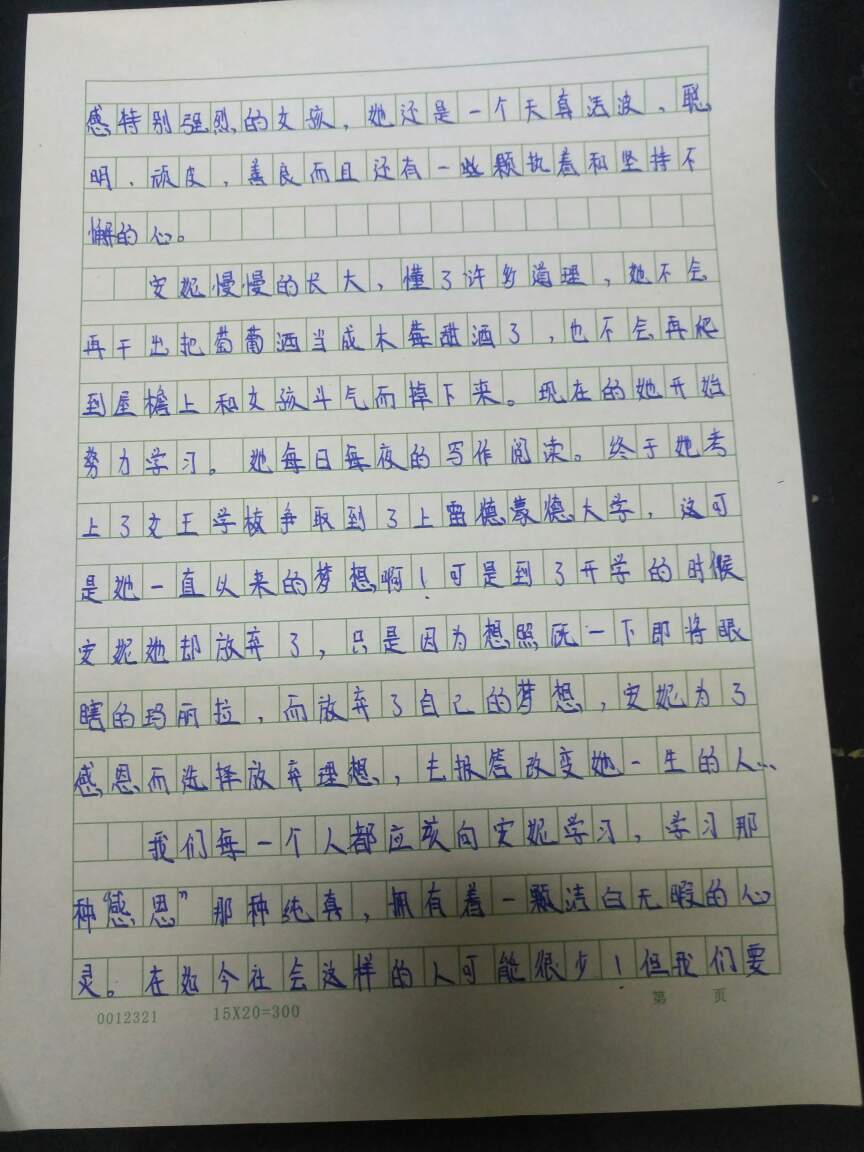 感特别强烈的女孩，她还是一个天真活波、聪
明、顽皮，善良而且还有一些颗执着和坚持不
懈的心。
安妮慢慢的长大，懂了许多道理，她不会
再干出把葡萄酒当成木莓甜酒了，也不会再爬
到屋檐上和女孩斗气而掉下来。现在的她开始
努力学习。她每日每夜的写作阅读。终于她考
上了女王学校争取到了上雷德蒙德大学，这可
是她一直以来的梦想啊！可是到了开学的时候
安妮她却放弃了，只是因为想照顾一下即将眼
瞎的玛丽拉，而放弃了自己的梦想，安妮为了
感恩而选择放弃理想，去报答改变她一生的人…
我们每一个人都应该向安妮学习，学习那
种“感恩”那种纯真，拥有着一颗洁白无暇的心
灵。在如今社会这样的人可能很少！但我们要
0012321 15X20=300 第 页